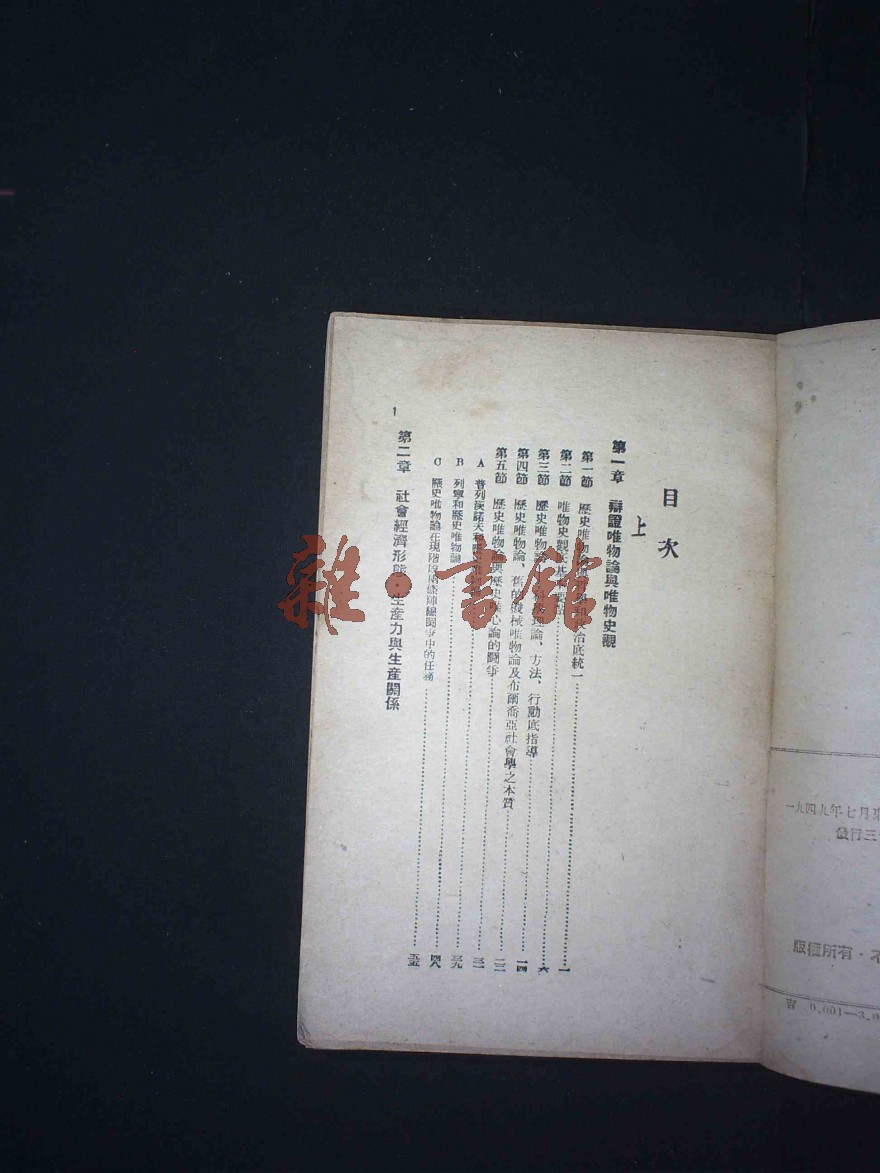 目次
上
第一章 辯證唯物論與唯物史觀
第一節 歷史唯物論 政治底統一 一
第二節 唯物史觀 六
第三節 歷史唯物論 理論、方法、行動底指導 一四
第四節 歷史唯物論、舊的機械唯物論及布爾喬亞社會學之本質
第五節 歷史唯物論與歷史唯心論的鬪爭
A 普列漢諾夫和
B 列寧和歷史唯物論
C 歷史唯物論在現階段兩條陣線鬪爭中的任務 四八
第二章 社會經濟形態 生產力與生產關係
1
一九四九年七月
發行三
版權所有·不
0.001—3.0
雜·書館